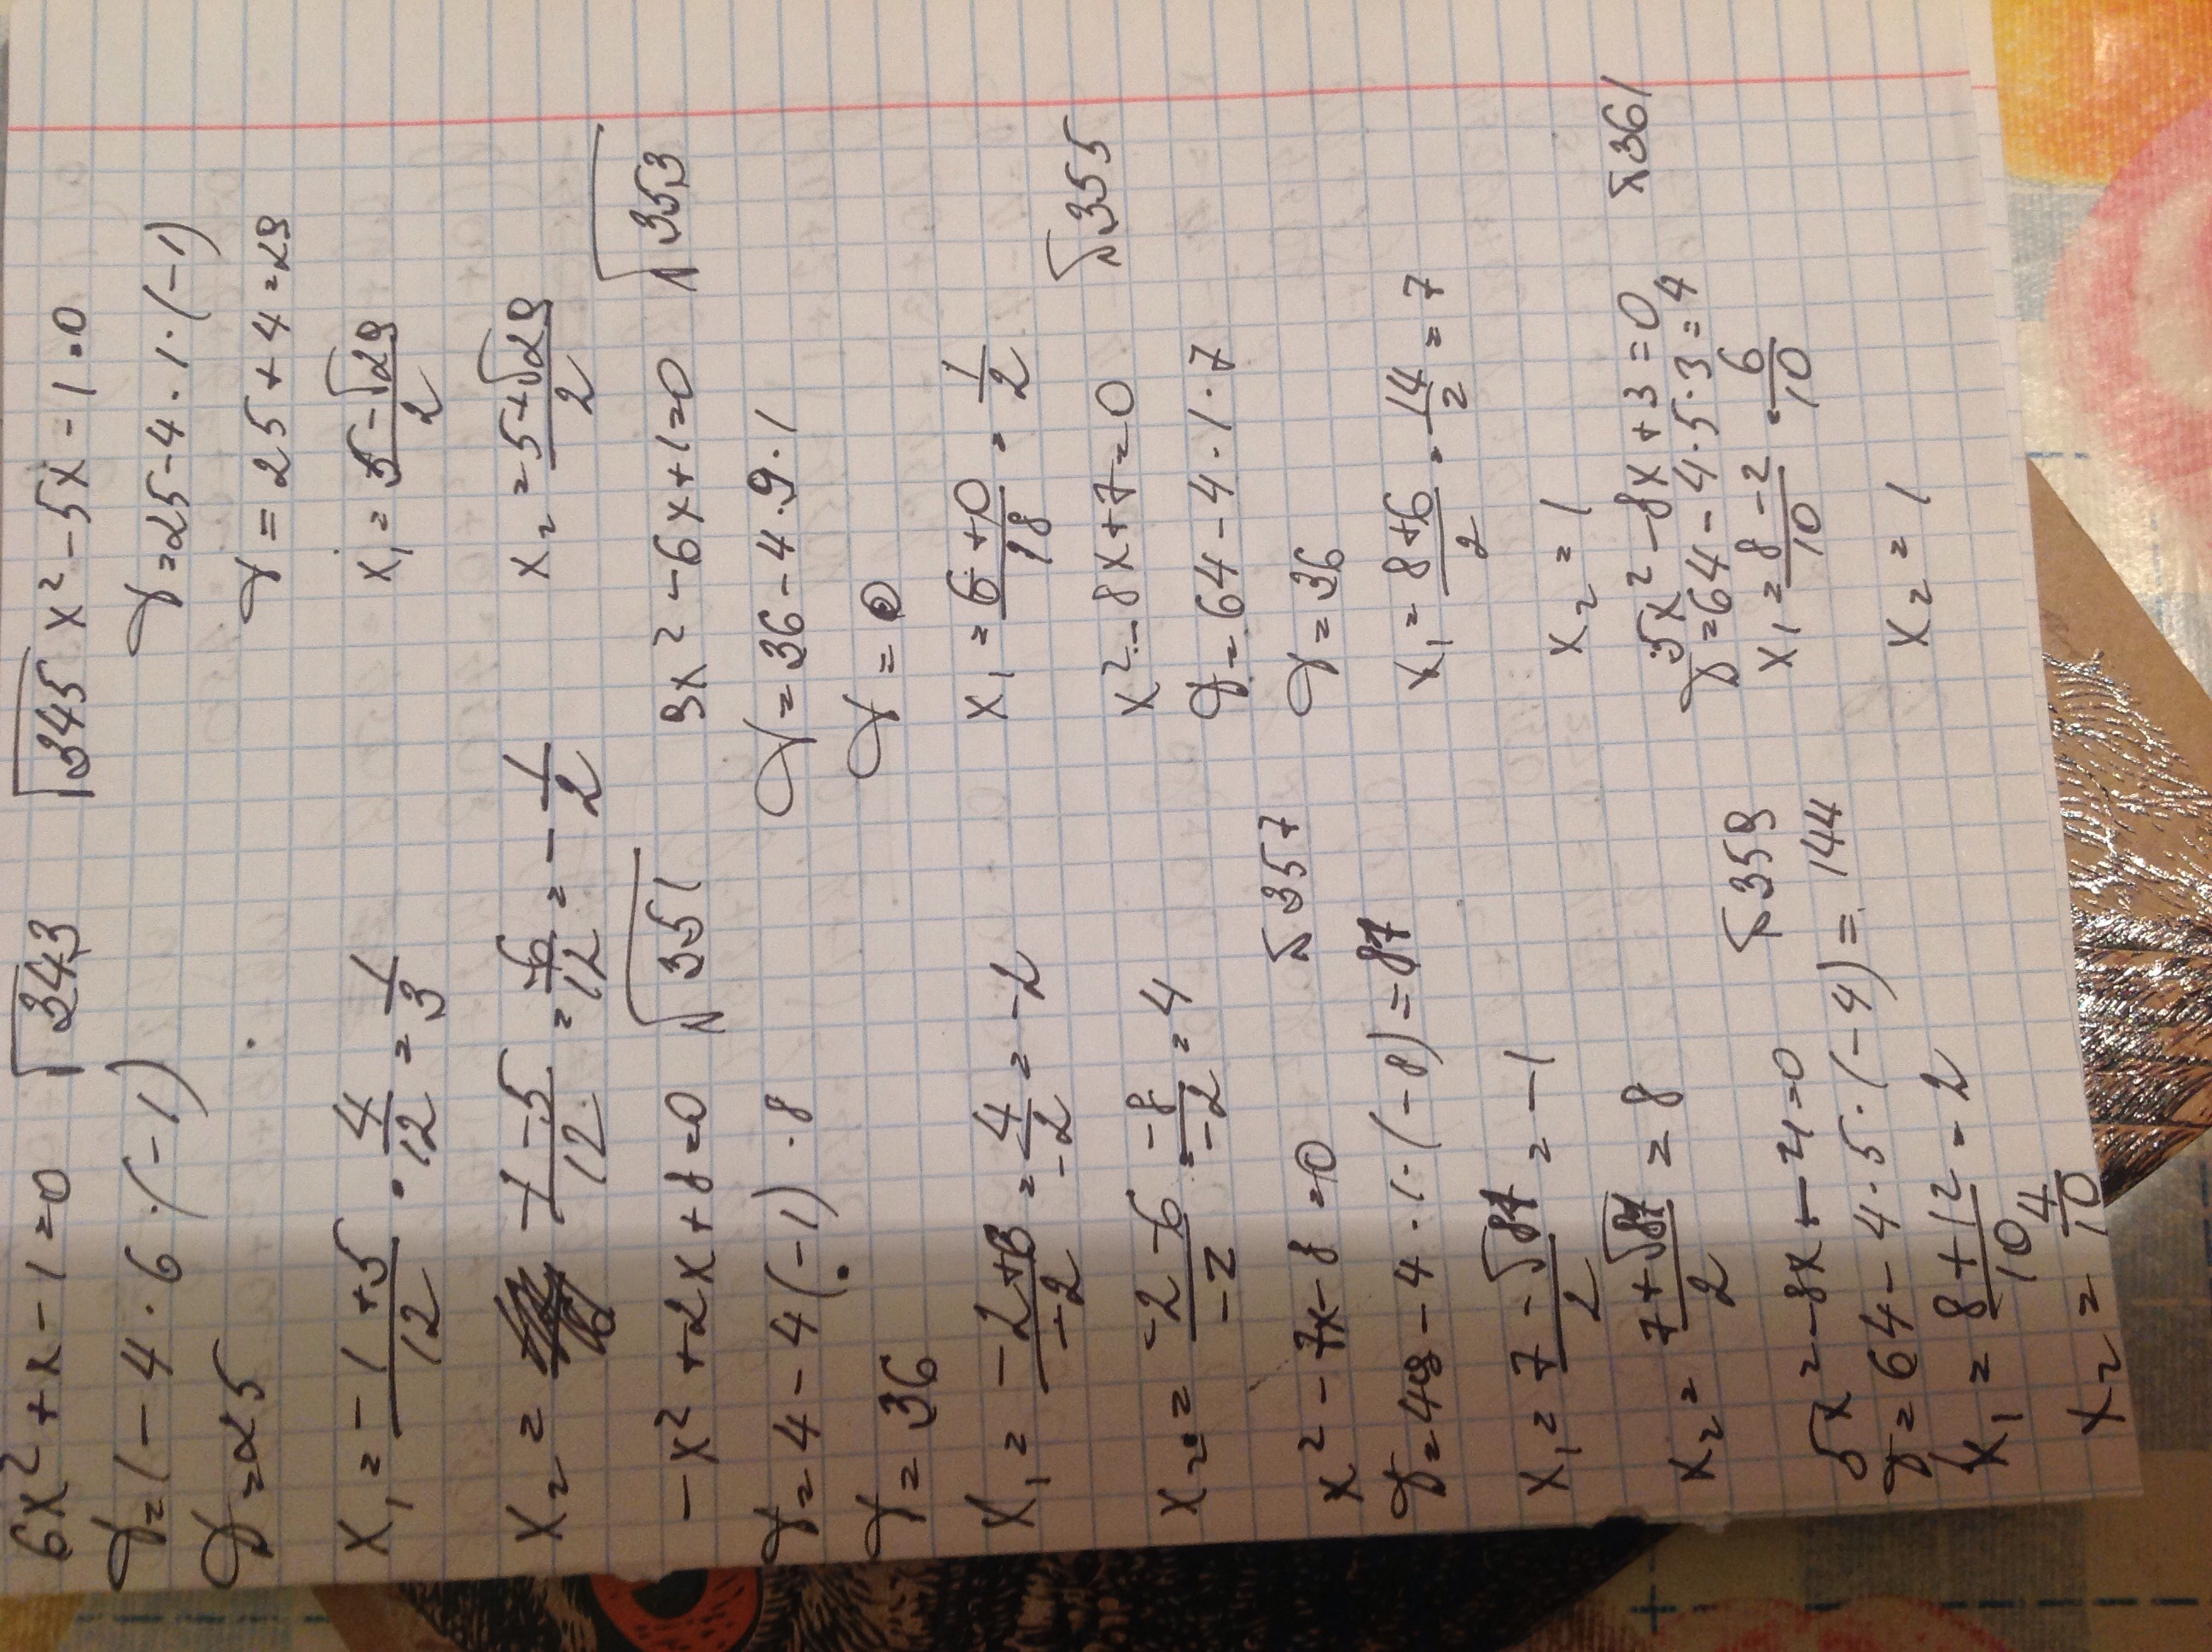 6x² + x - 1 = 0
343
D = 1 - 4 · 6 · (-1)
D = 25
x₁ = (-1 + 5)/12 = 4/12 = 1/3
x₂ = (-1 - 5)/12 = -6/12 = -1/2
351
-x² + 2x + 8 = 0
D = 4 - 4 · (-1) · 8
D = 36
x₁ = (-2 + 6)/-2 = 4/-2 = -2
x₂ = (-2 - 6)/-2 = -8/-2 = 4
357
x² - 7x - 8 = 0
D = 49 - 4 · 1 · (-8) = 81
x₁ = (7 - √81)/2 = -1
x₂ = (7 + √81)/2 = 8
359
5x² - 8x - 4 = 0
D = 64 - 4 · 5 · (-4) = 144
x₁ = (8 + 12)/10 = 2
x₂ = 4/10
345
x² - 5x - 1 = 0
D = 25 - 4 · 1 · (-1)
D = 25 + 4 = 29
x₁ = (5 - √29)/2
x₂ = (5 + √29)/2
353
9x² - 6x + 1 = 0
D = 36 - 4 · 9 · 1
D = 0
x₁ = (6 + 0)/18 = 1/2
355
x² - 8x + 7 = 0
D = 64 - 4 · 1 · 7
D = 36
x₁ = (8 + 6)/2 = 14/2 = 7
x₂ = 1
361
5x² - 8x + 3 = 0
D = 64 - 4 · 5 · 3 = 4
x₁ = (8 - 2)/10 = 6/10
x₂ = 1